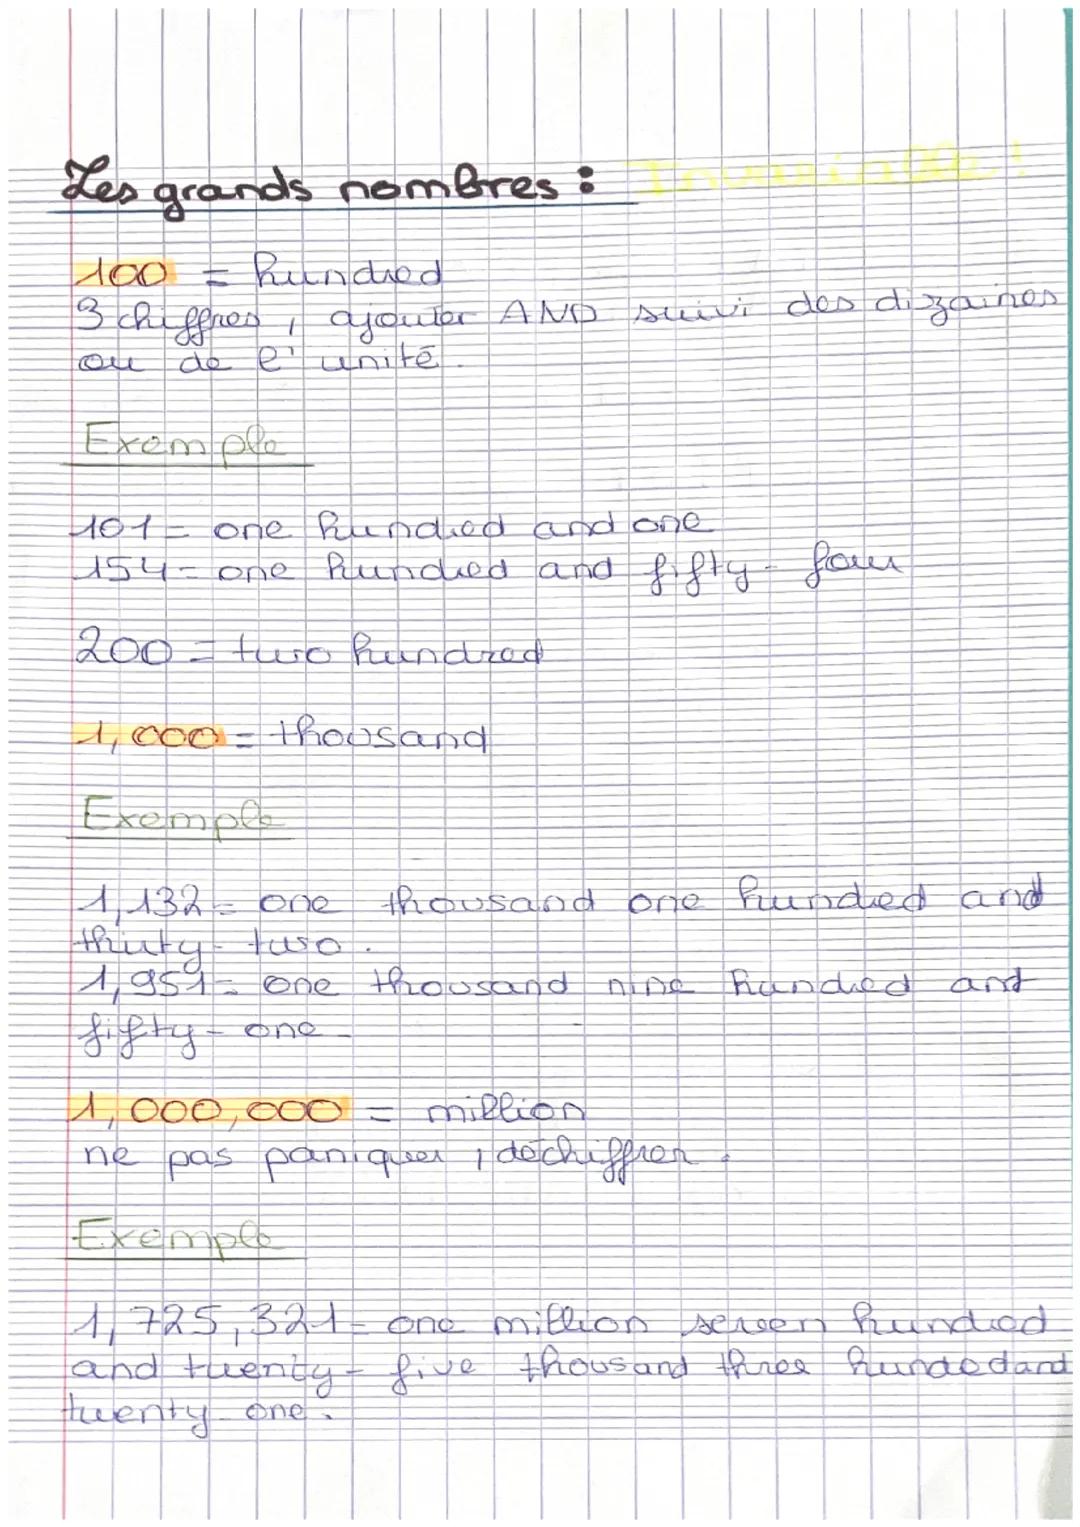 Les grands nombres : Invariable !
100 = hundred
3 chiffres, ajouter AND suivi des dizaines
ou de l'unité.
Exemple
101 = one hundred and one
154 = one hundred and fifty-four
200 = two hundred
1,000 = thousand
Exemple
1,132 = one thousand one hundred and
thirty-two.
1,951 = one thousand nine hundred and
fifty-one
1,000,000 = million
ne pas paniquer, déchiffrer.
Exemple
1,725,321 = one million seven hundred
and twenty-five thousand three hundedand
twenty-one.